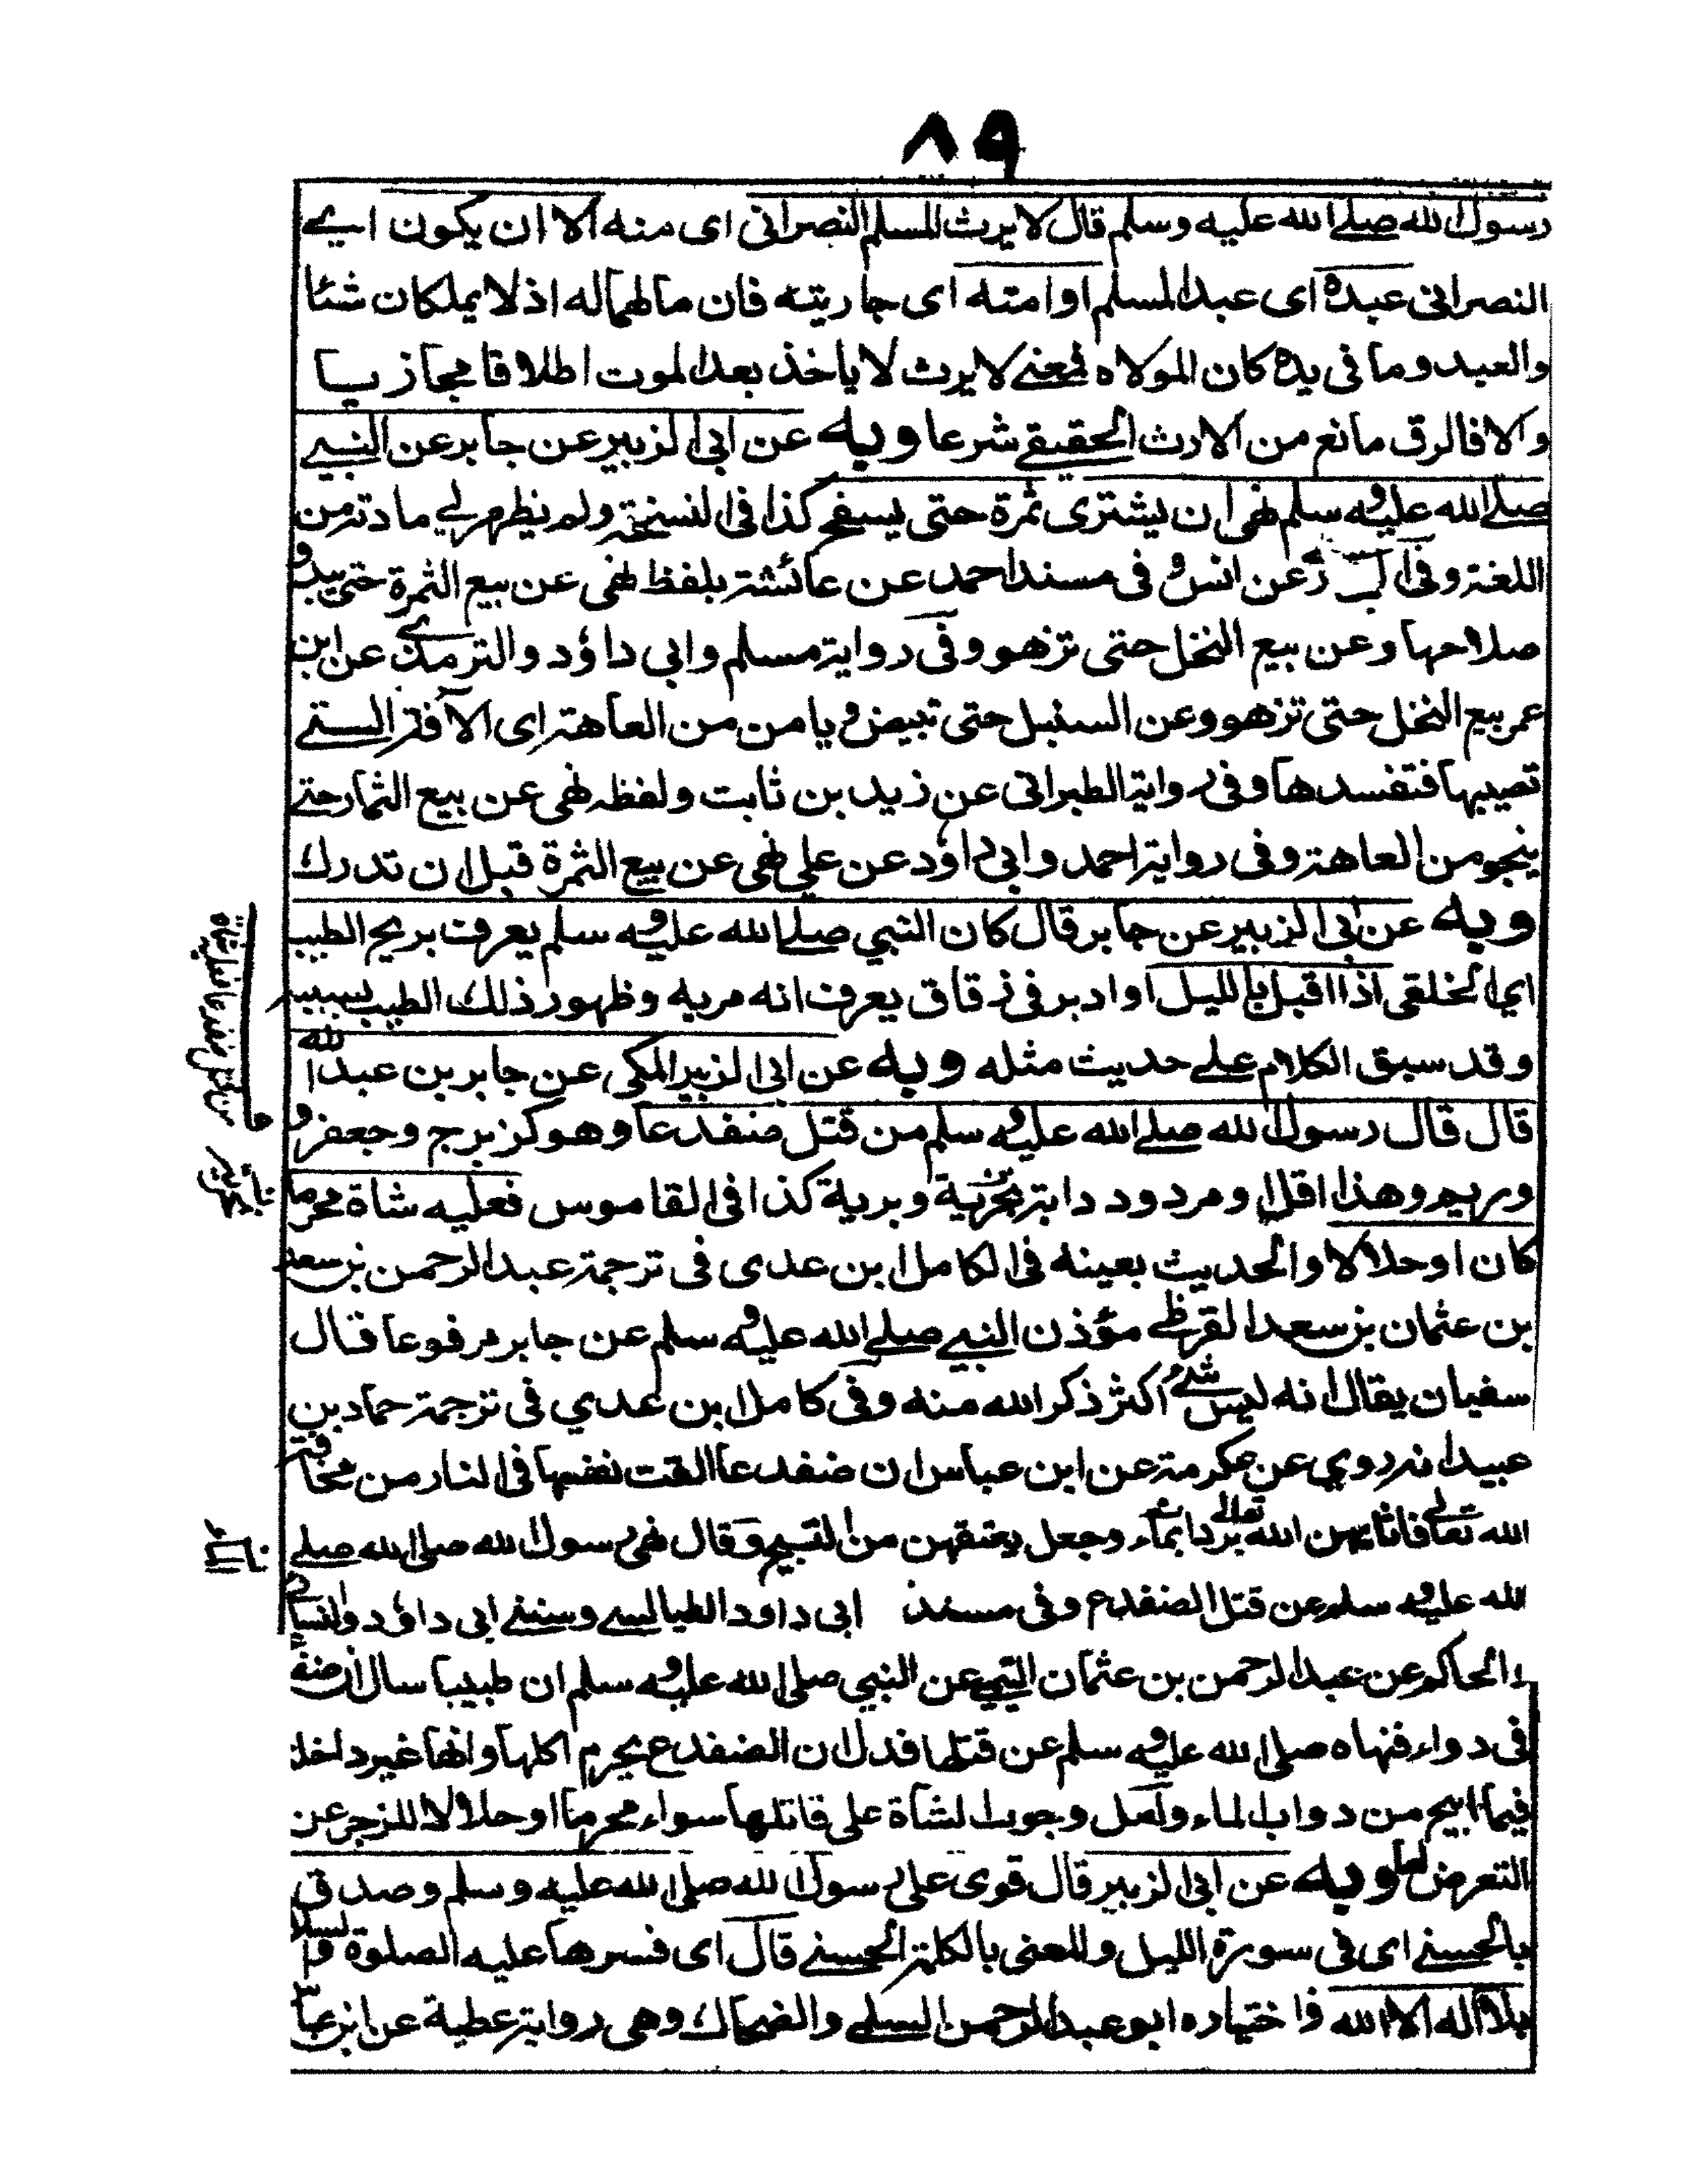 ٨٩
رسول الله صلے الله عليه وسلم قال لا يرث المسلم النصرانى اى منه الا ان يكون اے
النصرانى عبده اى عبد المسلم او امته اى جاريته فان مالهما له اذ لا يملكان شئا
والعبد وما فى يده كان المولاه فمعنے لا يرث لا ياخذ بعد الموت اطلاقا مجازيا
والا فالرق مانع من الارث الحقيقے شرعا وبه عن ابى الزبير عن جابر عن النبے
صلے الله عليه وسلم نهى ان يشترى ثمرة حتى يسفح كذا فى النسخة ولم يظهر لے مادته من
اللغة وفى عن انس وفى مسند احمد عن عائشة بلفظ نهى عن بيع الثمرة حتى يبدو
صلاحها وعن بيع النخل حتى تزهو وفى رواية مسلم وابى داؤد والترمذے عن ابن
عمر بيع النخل حتى تزهو وعن السنبل حتى تبيض ويامن من العاهة اى الآفة التے
تصيبها فتفسدها وفى رواية الطبرانى عن زيد بن ثابت ولفظه نهى عن بيع الثمار حتے
ينجو من العاهة وفى رواية احمد وابى داؤد عن علي نهى عن بيع الثمرة قبل ان تدرك
وبه عن ابى الزبير عن جابر قال كان النبي صلے الله عليه وسلم يعرف بريح الطيب
اى الخلقى اذا اقبل بالليل او ادبر فى زقاق يعرف انه مر به وظهور ذلك الطيب بسببه
وقد سبق الكلام علے حديث مثله وبه عن ابى الزبير المكى عن جابر بن عبد الله
قال قال رسول الله صلے الله عليه وسلم من قتل ضفدعا وهو كزبرج وجعفر و
ودرهم وهذا اقل او مردود دابة بحرية وبرية كذا فى القاموس فعليه شاة محرما
كان او حلالا والحديث بعينه فى الكامل ابن عدى فى ترجمة عبد الرحمن بن سعد
بن عثمان بن سعد القرظے مؤذن النبے صلے الله عليه وسلم عن جابر مرفوعا قال
سفيان يقال انه ليس شئے اكثر ذكر الله منه وفى كامل ابن عدي فى ترجمة حماد بن
عبيد انه روي عن عكرمة عن ابن عباس ان ضفدعا القت نفسها فى النار من مخافة
الله تعالے فاثابهن الله تعالى برد الماء وجعل يعتقهن من التسبيح وقال نهى رسول الله صلى الله صلے
الله عليه وسلم عن قتل الضفدع وفى مسند ابى داود الطيالسے وسننے ابى داؤد والنسائے
والحاكم عن عبد الرحمن بن عثمان التيمے عن النبي صلى الله عليه وسلم ان طبيبا سال ان ضفد
فى دواء فنهاه صلى الله عليه وسلم عن قتلها فدل ان الضفدع يحرم اكلها وانها غير داخلة
فيما ابيح من دواب الماء ولعل وجوب الشاة على قاتلها سواء محرما او حلالا للزجر عن
التعرض لها وبه عن ابى الزبير قال قوى على رسول الله صلى الله عليه وسلم وصدق
بالحسنے اى فى سورة الليل والمعنى بالكلمة الحسنے قال اى فسرها عليه الصلوة والسلا
بلا اله الا الله فاختياره ابو عبد الرحمن السلمے والضحاك وهى رواية عطية عن ابن عبا